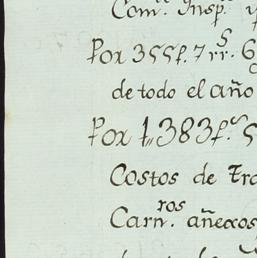 Com. Insp. y
Por 355p. 7 rr.s 6
de todo el año
Por 1,,383p.s 5
Costos de tra
Carn.ros añexos